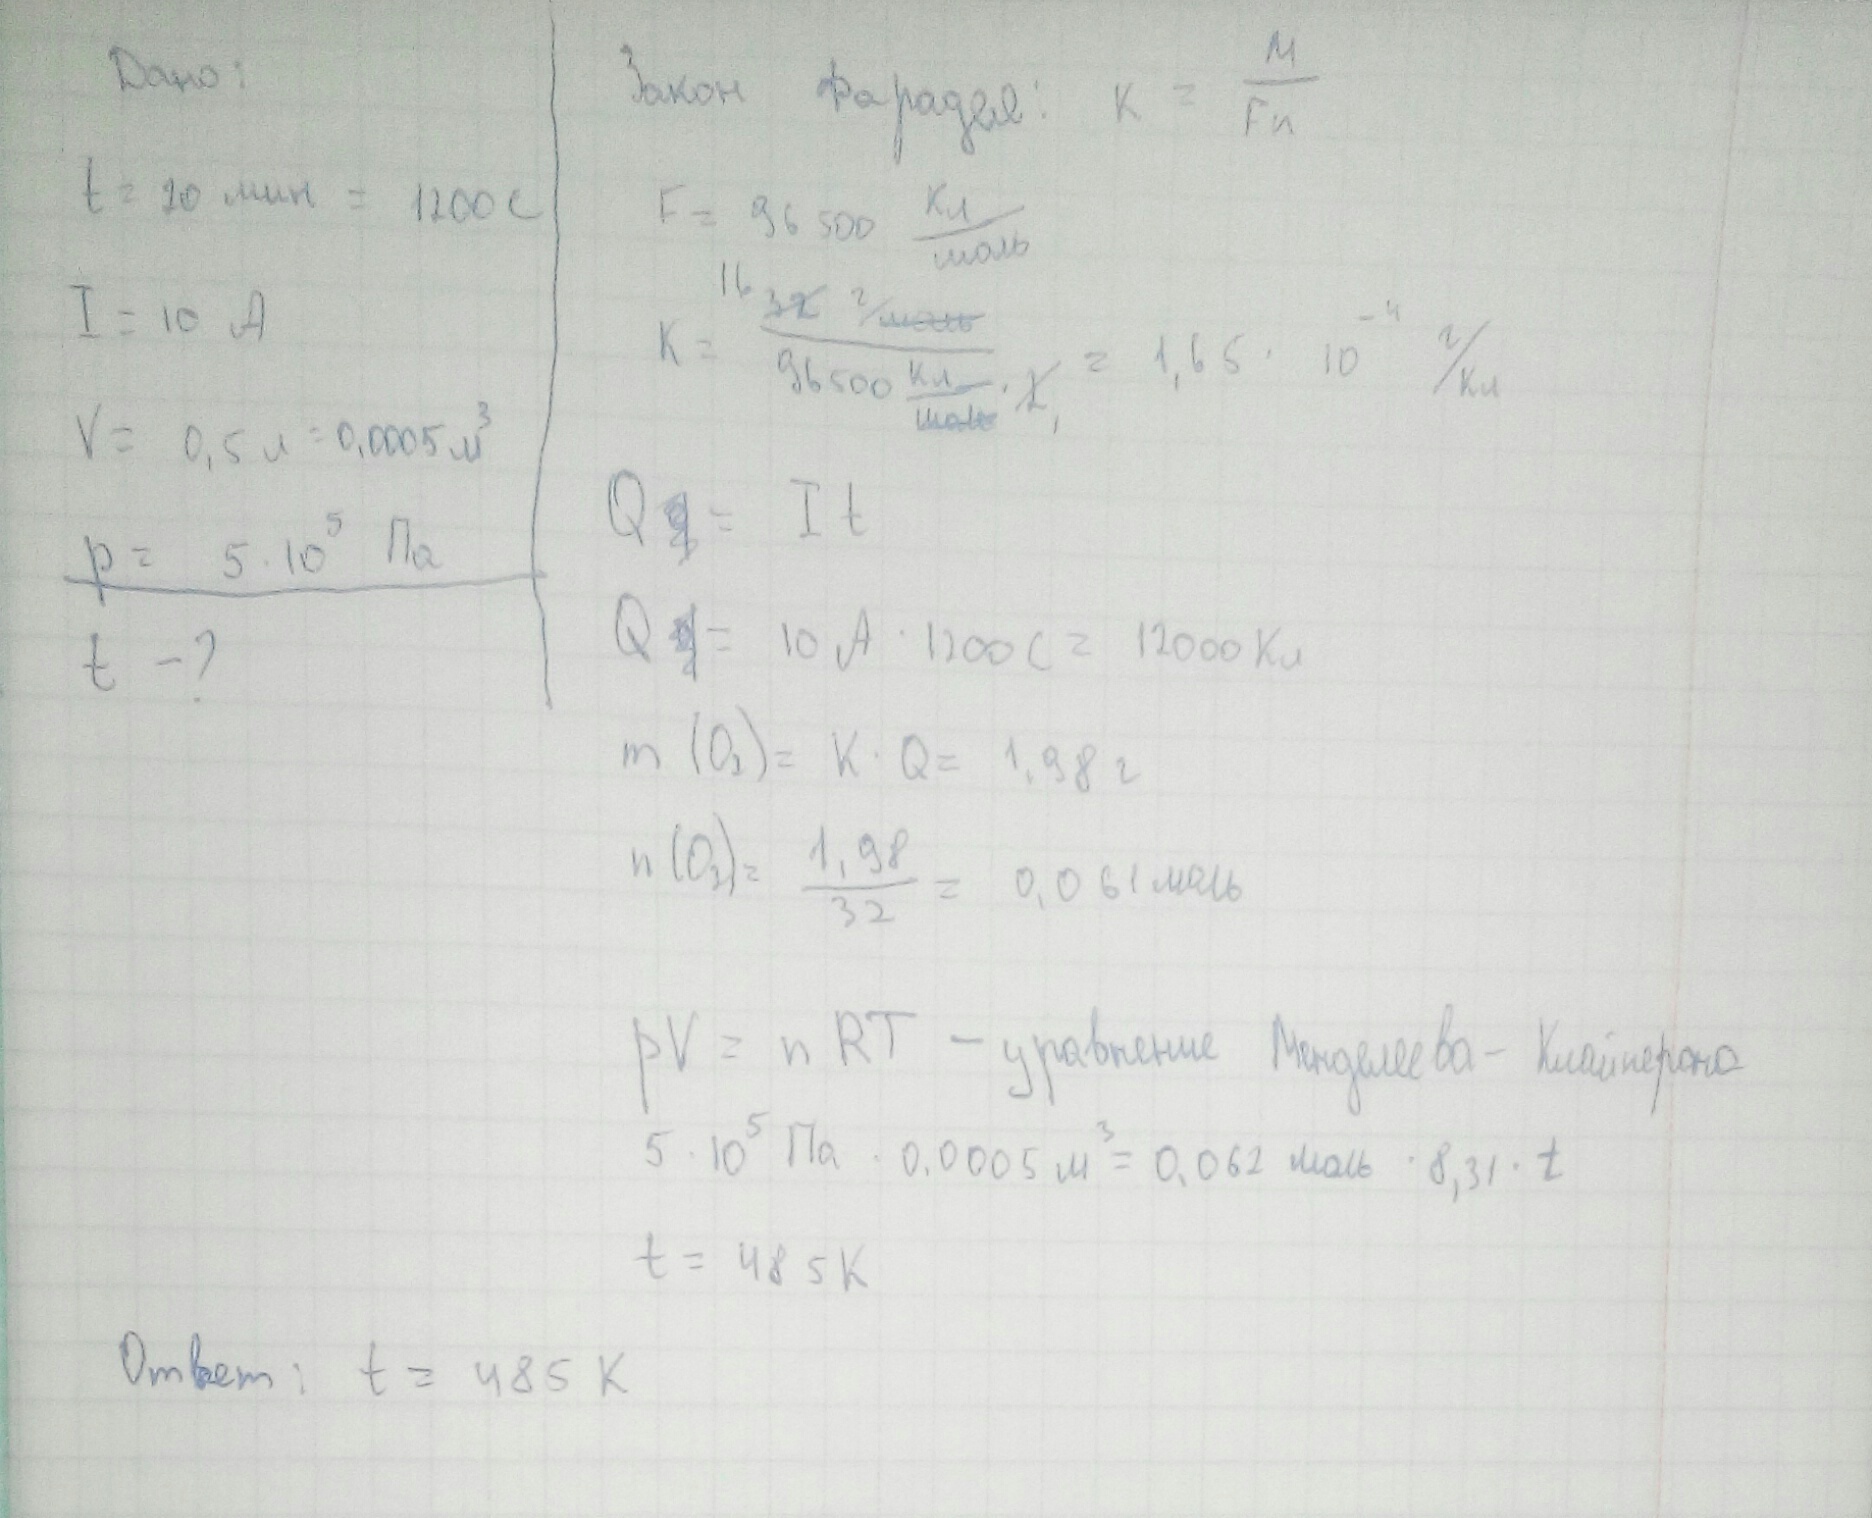 Дано:
t = 20 мин = 1200 с
I = 10 А
V = 0,5 л = 0,0005 м³
p = 5 · 10⁵ Па
t - ?
Закон Фарадея: K = M / Fn
F = 96 500 Кл/моль
K = 16 32 г/моль / 96500 Кл/моль · 2 1 = 1,65 · 10⁻⁴ г/Кл
Q = I t
Q = 10 А · 1200 С = 12000 Кл
m (O₂) = K · Q = 1,98 г
n (O₂) = 1,98 / 32 = 0,061 моль
pV = n RT – уравнение Менделеева - Клайперона
5 · 10⁵ Па · 0,0005 м³ = 0,062 моль · 8,31 · t
t = 485 K
Ответ: t = 485 K